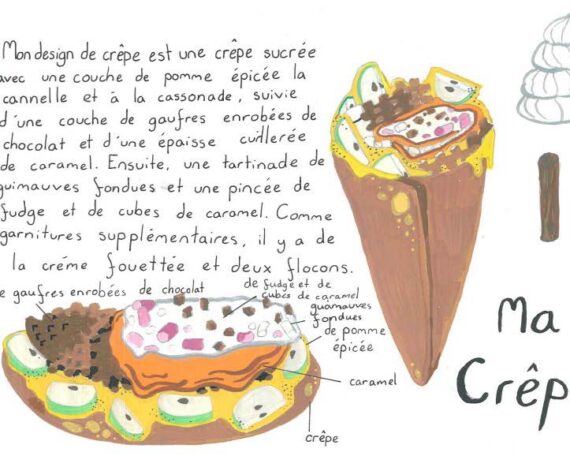 Mon design de crêpe est une crêpe sucrée
avec une couche de pomme épicée la
cannelle et à la cassonade, suivie
d'une couche de gaufres enrobées de
chocolat et d'une épaisse cuillerée
de caramel. Ensuite, une tartinade de
guimauves fondues et une pincée de
fudge et de cubes de caramel. Comme
garnitures supplémentaires, il y a de
la créme fouettée et deux flocons.
gaufres enrobées de chocolat
de fudge et de
cubes de caramel
guamauves
fondues
de pomme
épicée
caramel
crêpe
Ma
Crêp